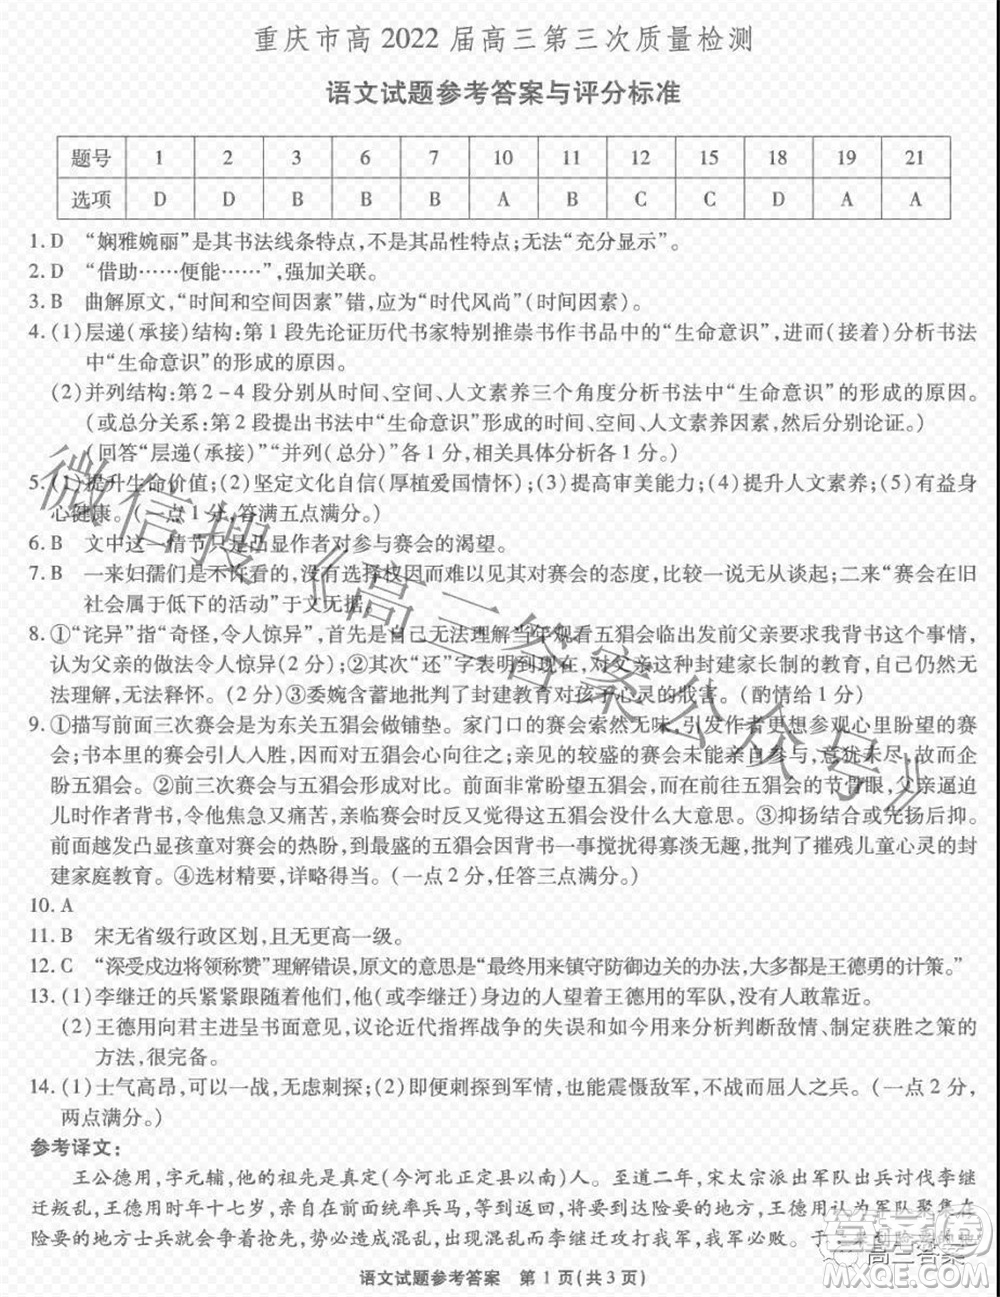 重庆市高 2022 届高三第三次质量检测
语文试题参考答案与评分标准
题号 1 2 3 6 7 10 11 12 15 18 19 21
选项 D D B B B A B C C D A A
1. D “娴雅婉丽”是其书法线条特点,不是其品性特点;无法“充分显示”。
2. D “借助……便能……”,强加关联。
3. B 曲解原文,“时间和空间因素”错,应为“时代风尚”(时间因素)。
4. (1)层递(承接)结构:第 1 段先论证历代书家特别推崇书作书品中的“生命意识”,进而(接着)分析书法
中“生命意识”的形成的原因。
(2)并列结构:第 2-4 段分别从时间、空间、人文素养三个角度分析书法中“生命意识”的形成的原因。
(或总分关系:第 2 段提出书法中“生命意识”形成的时间、空间、人文素养的因素,后面具体分别论证。)
(回答“层递(承接)”“并列(总分)”各 1 分,结合文本具体分析各 1 分。)
5. (1)提升生命价值;(2)坚定文化自信(厚植爱国情怀);(3)提高审美能力;(4)提升人文素养;(5)有益身
心健康。(一点 1 分,答满五点满分。)
6. B 文中这一情节只是凸显作者对参与赛会的渴望。
7. B 一来妇孺们是不许看的,没有选择权因而难以见其对赛会的态度,比较一说无从谈起;二来“赛会在旧
社会属于低下的活动”于文无据。
8. ①“诧异”指“奇怪,令人惊异”,首先是自己无法理解当年观看五猖会临出发前父亲要求我背书这个事情,
认为父亲的做法令人惊异(2 分);②其次“还”字表明到现在,对父亲这种封建家长制的教育,自己仍然无
法理解、无法释怀。(2 分)③委婉含蓄地批判了封建教育对孩子心灵的戕害。(酌情给 1 分)
9. ①描写前面三次赛会是为东关五猖会做铺垫。家门口的赛会索然无味,引发作者更想参观心里盼望的赛
会;书本里的赛会引人入胜,因而对五猖会心向往之;亲见的较盛的赛会未能亲自参与,意犹未尽而企
盼五猖会。②前三次赛会与五猖会形成对比。前面非常盼望五猖会的节骨眼,父亲逼迫
儿时作者背书,令他焦急又痛苦,亲临赛会时反又觉得这五猖会没什么大意思。③抑扬结合或先扬后抑。
前面越发凸显孩童对赛会的热情,到最盛的五猖会因背书一事搅扰得寡淡无趣,批判了摧残儿童心灵的封
建家庭教育。④选材精要,详略得当。(一点 2 分,任答三点满分。)
10. A
11. B 宋无省级行政区划,且无更高一级。
12. C “深受戍边将领称赞”理解错误,原文的意思是“最终用来镇守防御边关的办法,大多都是王德勇的计策。”
13. (1)李继迁的兵紧紧跟随着他们,他(或李继迁)身边的人望着王德用的军队,没有人敢靠近。
(2)王德用向君主进呈书面意见,议论近代指挥战争的失误和如今用来分析判断敌情、制定获胜之策的
方法,很完备。
14. (1)士气高昂,可以一战,无虑刺探;(2)即便刺探到军情,也能震慑敌军,不战而屈人之兵。(一点 2 分,
两点满分。)
参考译文:
王公德用,字元辅,他的祖先是真定(今河北正定县以南)人。至道二年,宋太宗派出军队出兵讨伐李继
迁叛乱,王德用时年十七岁,亲自率兵为先锋,将要到达险要的地方,王德用认为军队聚集在
险要的地方士兵就会争抢着先走,势必造成混乱,出现混乱而李继迁攻打我军,我军必败。于
语文试题参考答案 第 1 页(共 3 页)
微信搜《高三答案公众号》
高三答案